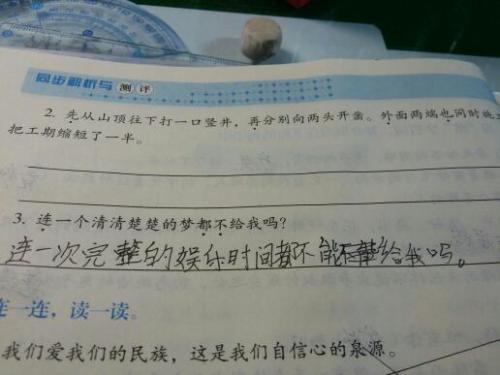 同步解析与测评
2. 先从山顶往下打一口竖井，再分别向两头开凿。外面两端也同时施工
把工期缩短了一半。
3. 连一个清清楚楚的梦都不给我吗?
连一次完整的娱乐时间都不能给我吗。
连一连，读一读。
我们爱我们的民族，这是我们自信心的泉源。